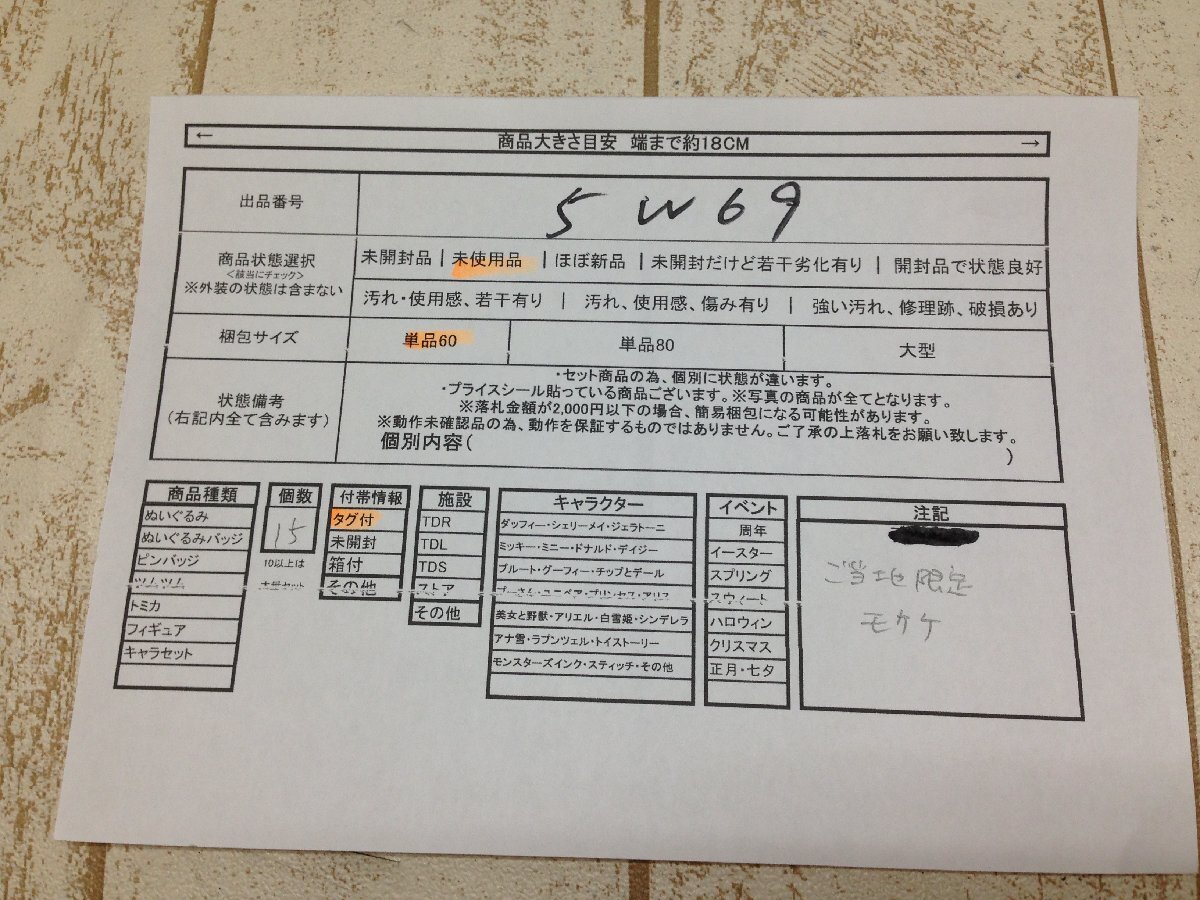 ← 商品大きさ目安 端まで約18CM →
出品番号 5W69
商品状態選択
<該当にチェック>
※外装の状態は含まない
未開封品 | 未使用品 | ほぼ新品 | 未開封だけど若干劣化有り | 開封品で状態良好
汚れ・使用感、若干有り | 汚れ、使用感、傷み有り | 強い汚れ、修理跡、破損あり
梱包サイズ 単品60 単品80 大型
状態備考
(右記内全て含みます)
・セット商品の為、個別に状態が違います。
・プライスシール貼っている商品ございます。※写真の商品が全てとなります。
※落札金額が2,000円以下の場合、簡易梱包になる可能性があります。
※動作未確認品の為、動作を保証するものではありません。ご了承の上落札をお願い致します。
個別内容( )
商品種類
ぬいぐるみ
ぬいぐるみバッジ
ピンバッジ
ツムツム
トミカ
フィギュア
キャラセット
個数
15
10以上は
付帯情報
タグ付
未開封
箱付
その他
施設
TDR
TDL
TDS
ストア
その他
キャラクター
ダッフィー・シェリーメイ・ジェラトーニ
ミッキー・ミニー・ドナルド・デイジー
プルート・グーフィー・チップとデール
プーさん・ユニベア・プリンセス・アリス
美女と野獣・アリエル・白雪姫・シンデレラ
アナ雪・ラプンツェル・トイストーリー
モンスターズインク・スティッチ・その他
イベント
周年
イースター
スプリング
スウィート
ハロウィン
クリスマス
正月・七夕
注記
ご当地限定
モケケ